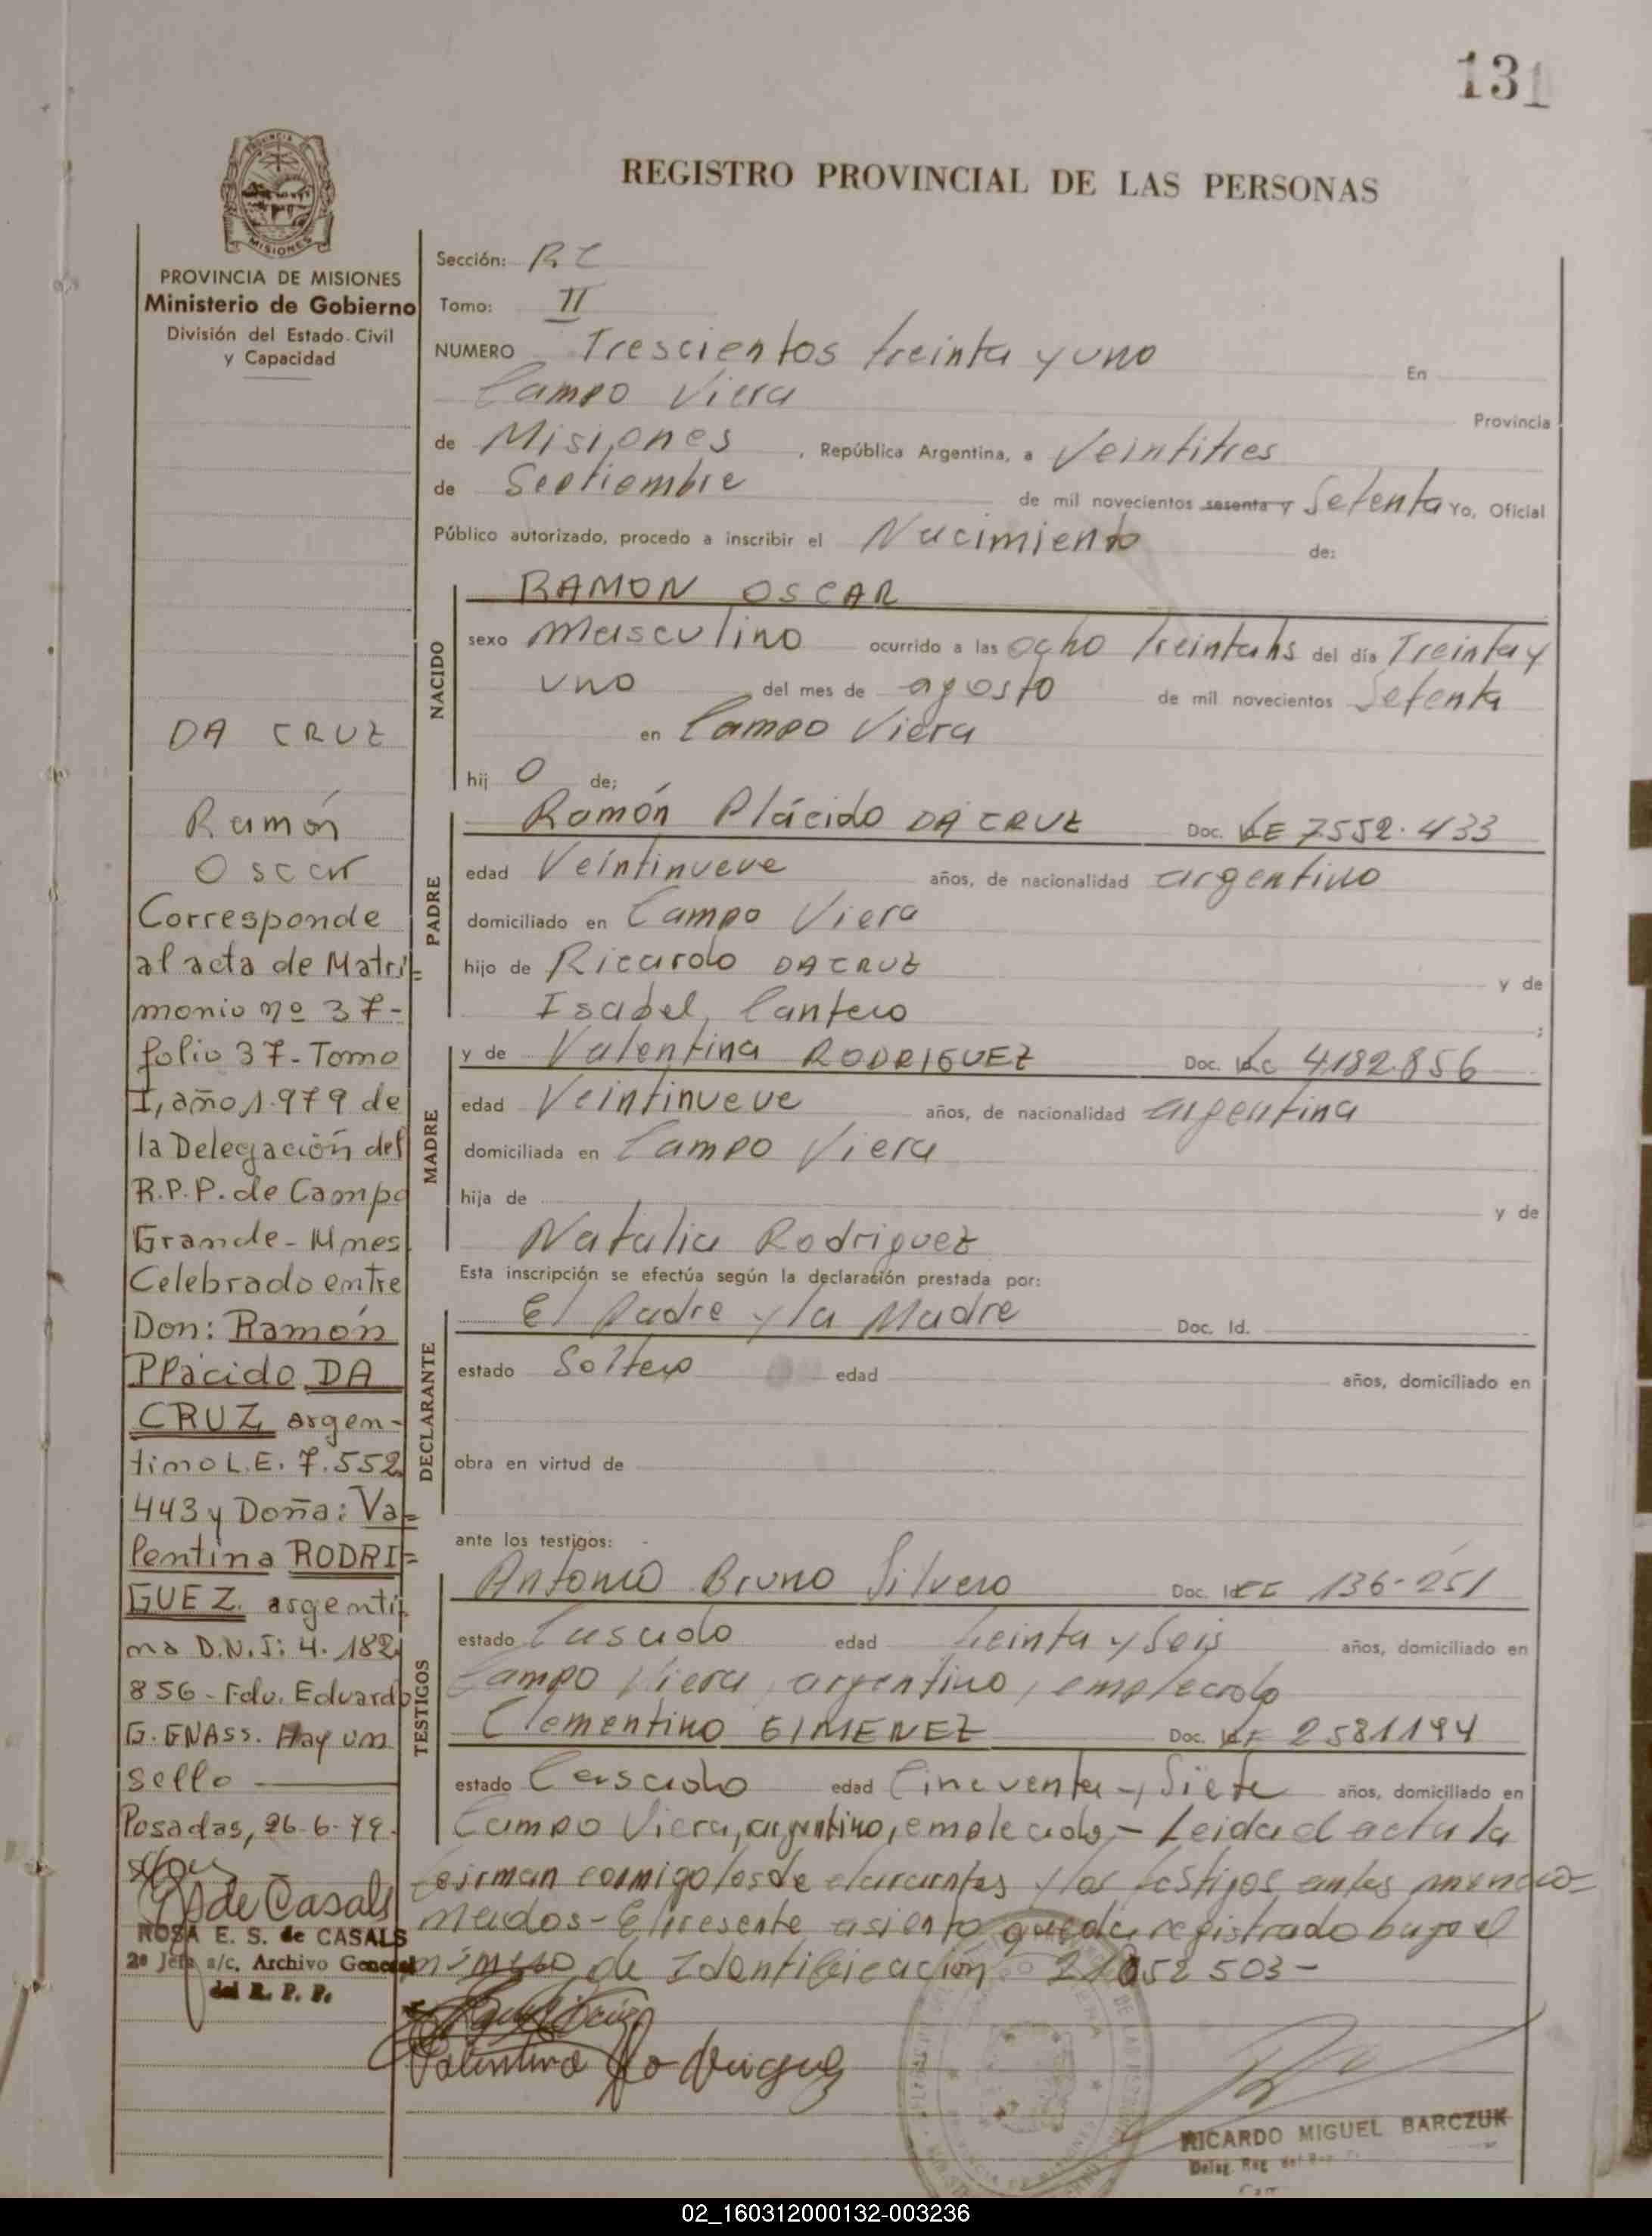 131
REGISTRO PROVINCIAL DE LAS PERSONAS
PROVINCIA
MISIONES
PROVINCIA DE MISIONES
Ministerio de Gobierno
División del Estado Civil
y Capacidad
DA CRUZ
Ramón
Oscar
Corresponde
al acta de Matri=
monio nº 37-
folio 37-Tomo
I, año 1.979 de
la Delegación del
R.P.P. de Campo
Grande-Mnes
Celebrado entre
Don: Ramón
Plácido DA
CRUZ argen-
tino L.E. 7.552
443 y Doña: Va=
lentina RODRI=
GUEZ. argenti
na D.N.I: 4.182
856-Fdo. Eduardo
G. ENASS. Hay un
sello
Posadas, 26-6-79.
de Casals
ROSA E. S. de CASALS
2ª Jefa a/c. Archivo General
del R. P. P.
Sección: RC
Tomo: II
NUMERO Trescientos treinta y uno En
Campo Viera Provincia
de Misiones, República Argentina, a Veintitres
de Septiembre de mil novecientos sesenta y Setenta Yo, Oficial
Público autorizado, procedo a inscribir el Nacimiento de:
NACIDO
RAMON OSCAR
sexo Masculino ocurrido a las ocho treinta hs del día Treinta y
uno del mes de agosto de mil novecientos Setenta
en Campo Viera
hij o de;
PADRE
Ramón Plácido DA CRUZ Doc. LE 7552.433
edad Veintinueve años, de nacionalidad argentino
domiciliado en Campo Viera
hijo de Ricardo DA CRUZ y de
Isabel Cantero ;
MADRE
y de Valentina RODRIGUEZ Doc. LC 4182.856
edad Veintinueve años, de nacionalidad argentina
domiciliada en Campo Viera
hija de y de
Natalia Rodriguez
Esta inscripción se efectúa según la declaración prestada por:
DECLARANTE
El Padre y la Madre Doc. Id.
estado Soltero edad años, domiciliado en
obra en virtud de
ante los testigos:
TESTIGOS
Antonio Bruno Silvero Doc. 136-251
estado Casado edad treinta y Seis años, domiciliado en
Campo Viera, argentino, empleado
Clementino GIMENEZ Doc. 2581194
estado Casado edad Cincuenta y Siete años, domiciliado en
Campo Viera, argentino, empleado,- Leida el acta la
firman conmigo los declarantes y los testigos antes mencio=
nados- El presente asiento queda registrado bajo el
número de Identificación 21052503-
Valentina Rodriguez
RICARDO MIGUEL BARCZUK
Deleg. Reg. del
02_160312000132-003236